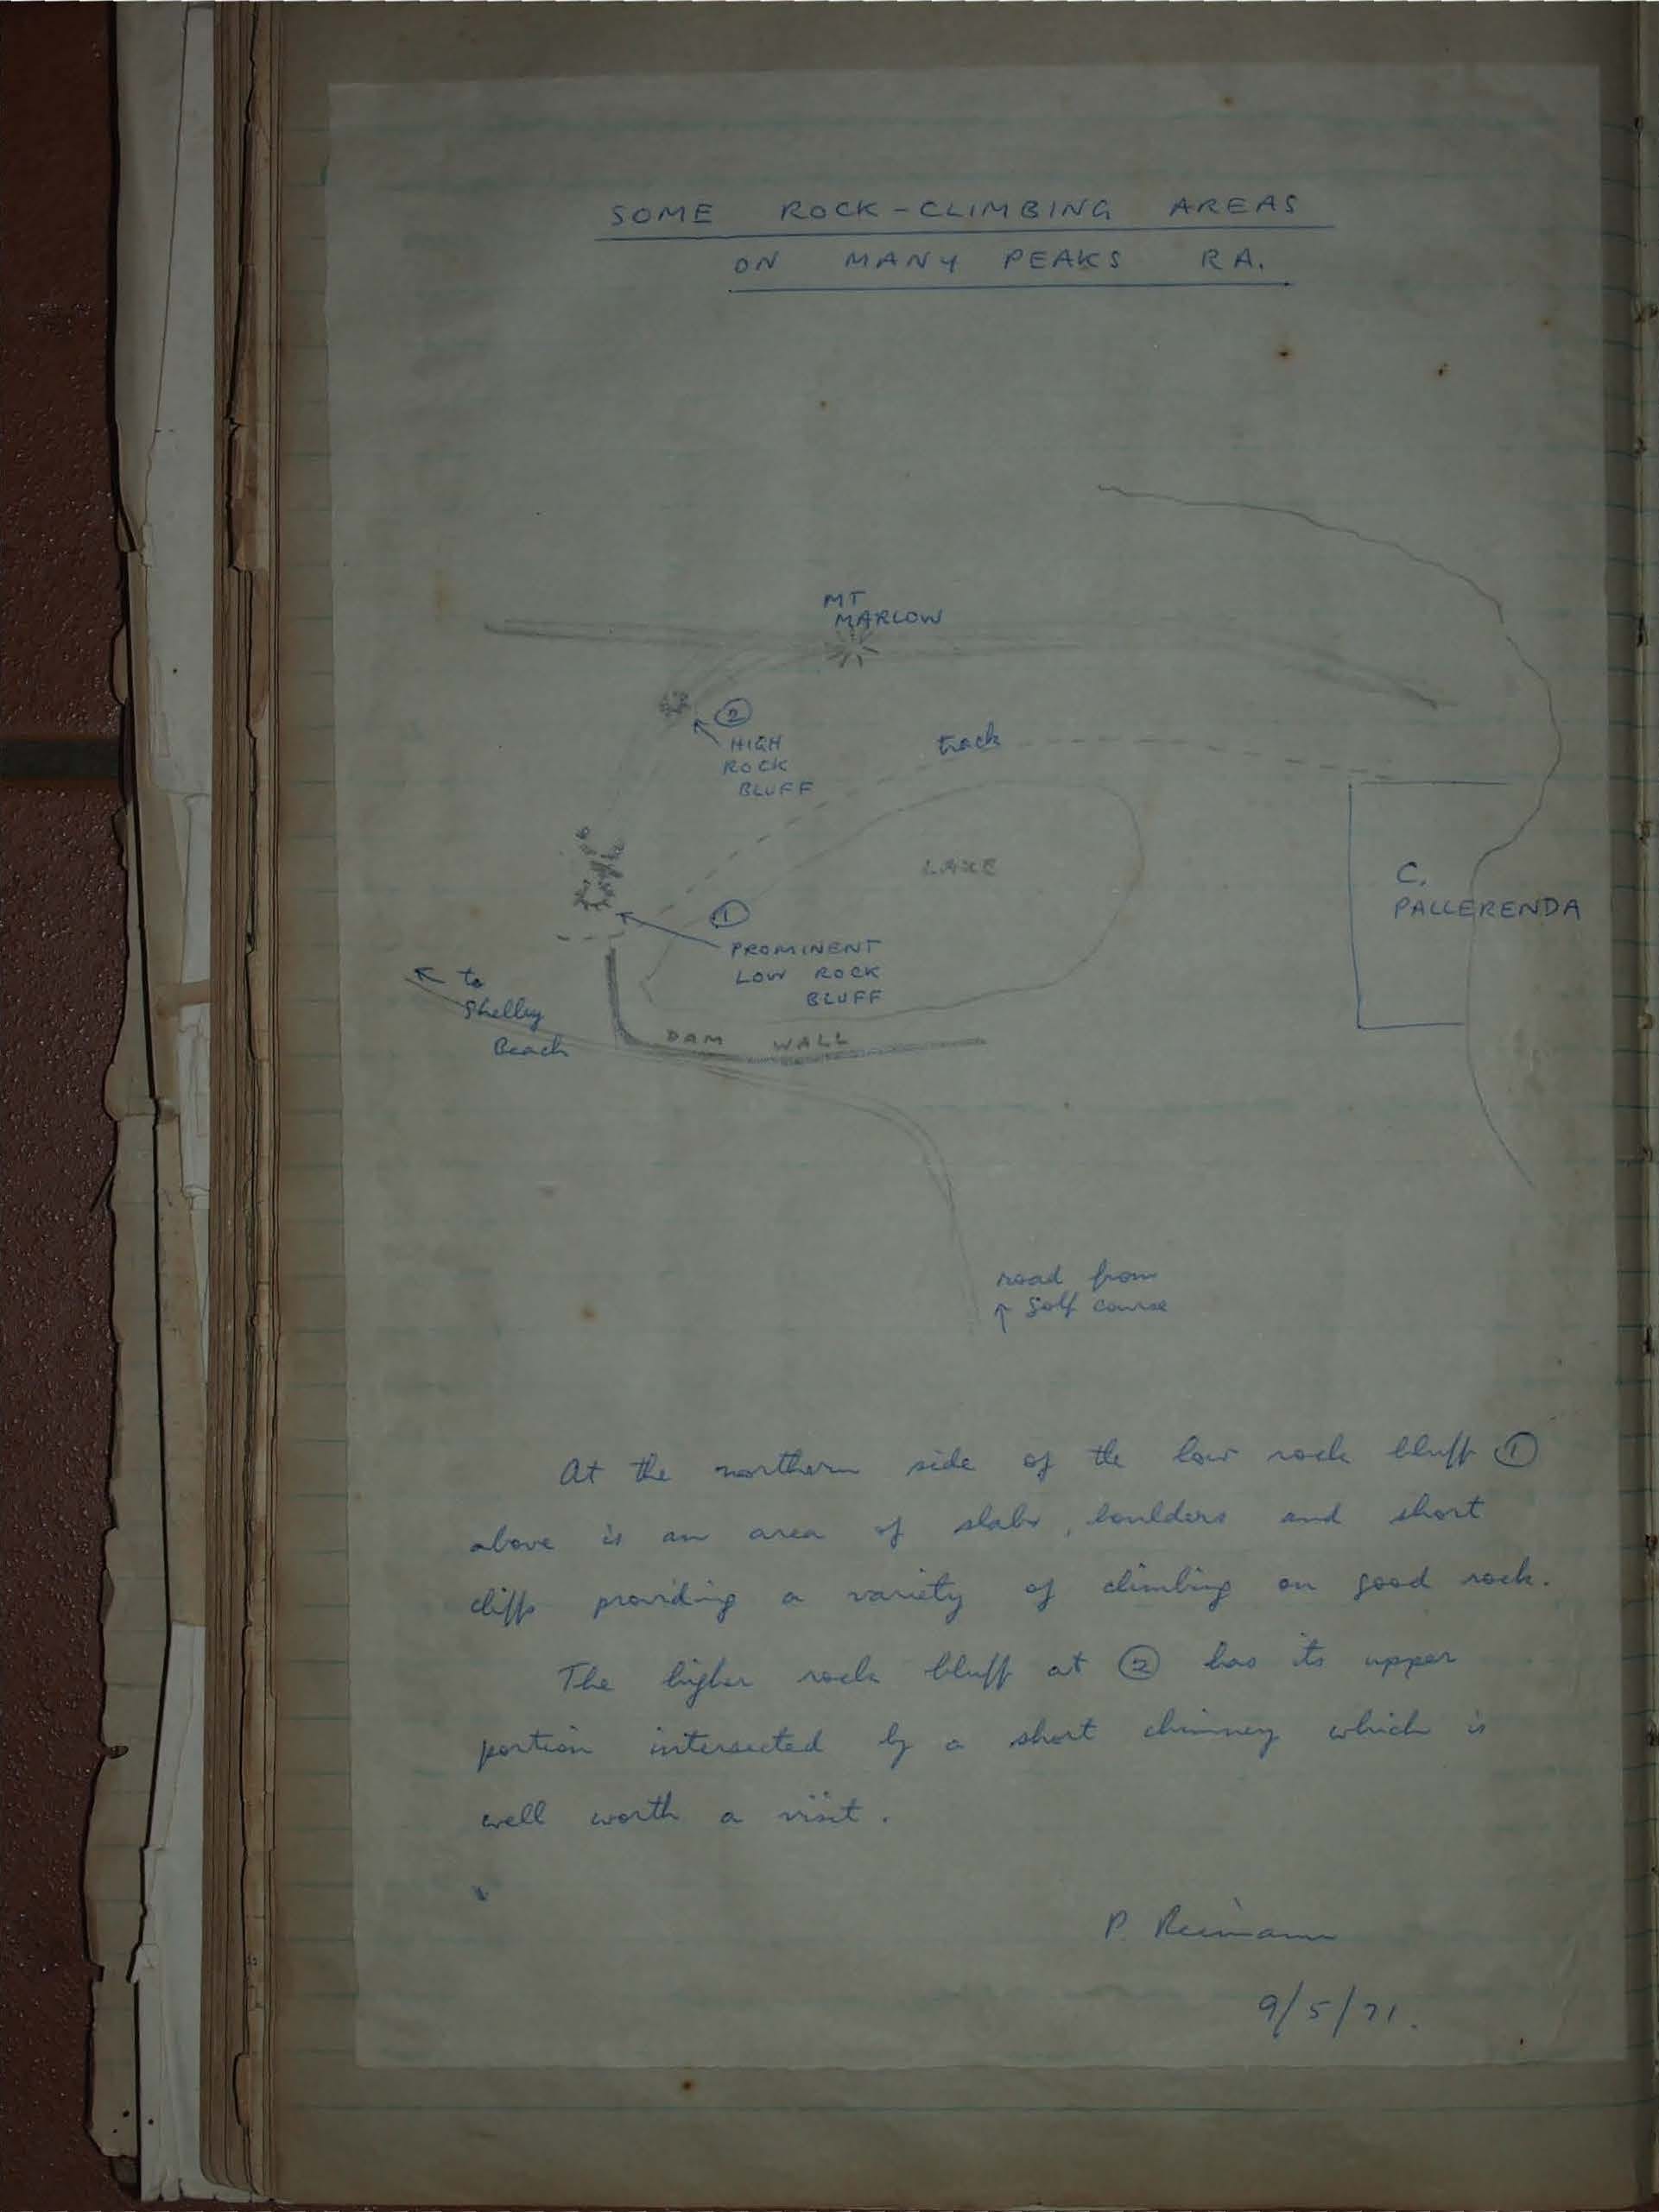 SOME ROCK-CLIMBING AREAS
ON MANY PEAKS RA.
MT
MARLOW
②
HIGH
ROCK
BLUFF
track
LAKE
C.
PALLERENDA
①
PROMINENT
LOW ROCK
BLUFF
to
Shelley
Beach
DAM WALL
road from
golf course
At the northern side of the low rock bluff ①
above is an area of slabs, boulders and short
cliffs providing a variety of climbing on good rock.
The higher rock bluff at ② has its upper
portion intersected by a short chimney which is
well worth a visit.
P. Reimann
9/5/71.